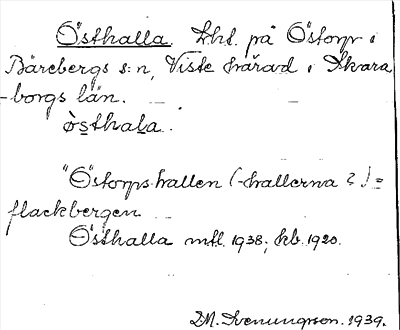 Östhalla Lht. på Östorp i
Bärebergs s:n, Viste härad i Skara
-borgs län.
ò̀sthala.
"Östorpshallen (-hallerna?) =
flackbergen
Östhalla mtl. 1938; kb. 1920.
D.M. Svenungson. 1939.